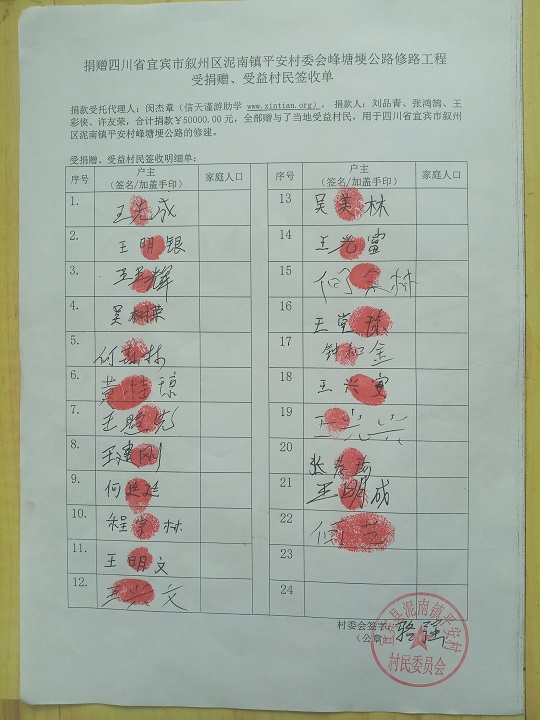 捐赠四川省宜宾市叙州区泥南镇平安村委会峰塘埂公路修路工程
受捐赠、受益村民签收单
捐款受托代理人：闵杰章（信天谨游助学 www.xintian.org）， 捐款人：刘品青、张鸿鹄、王
彩侠、许友荣，合计捐款￥50000.00 元，全部赠与了当地受益村民，用于四川省宜宾市叙州
区泥南镇平安村峰塘埂公路的修建。
受捐赠、受益村民签收明细单：
序号 户主（签名/加盖手印） 家庭人口
1. 王光成
2. 王明银
3. 王 辉
4. 吴树荣
5. 何 林
6. 琼
7. 王
8. 王建刚
9. 何
10. 程学林
11. 王明文
12. 王兴文
序号 户主（签名/加盖手印） 家庭人口
13 吴美林
14 王光富
15 何 林
16 王党
17 钟和金
18 王兴
19 王
20 张
21 王明成
22 何
23
24
村委会签字：
（公章） 骆强
宜宾县泥南镇平安村
村民委员会